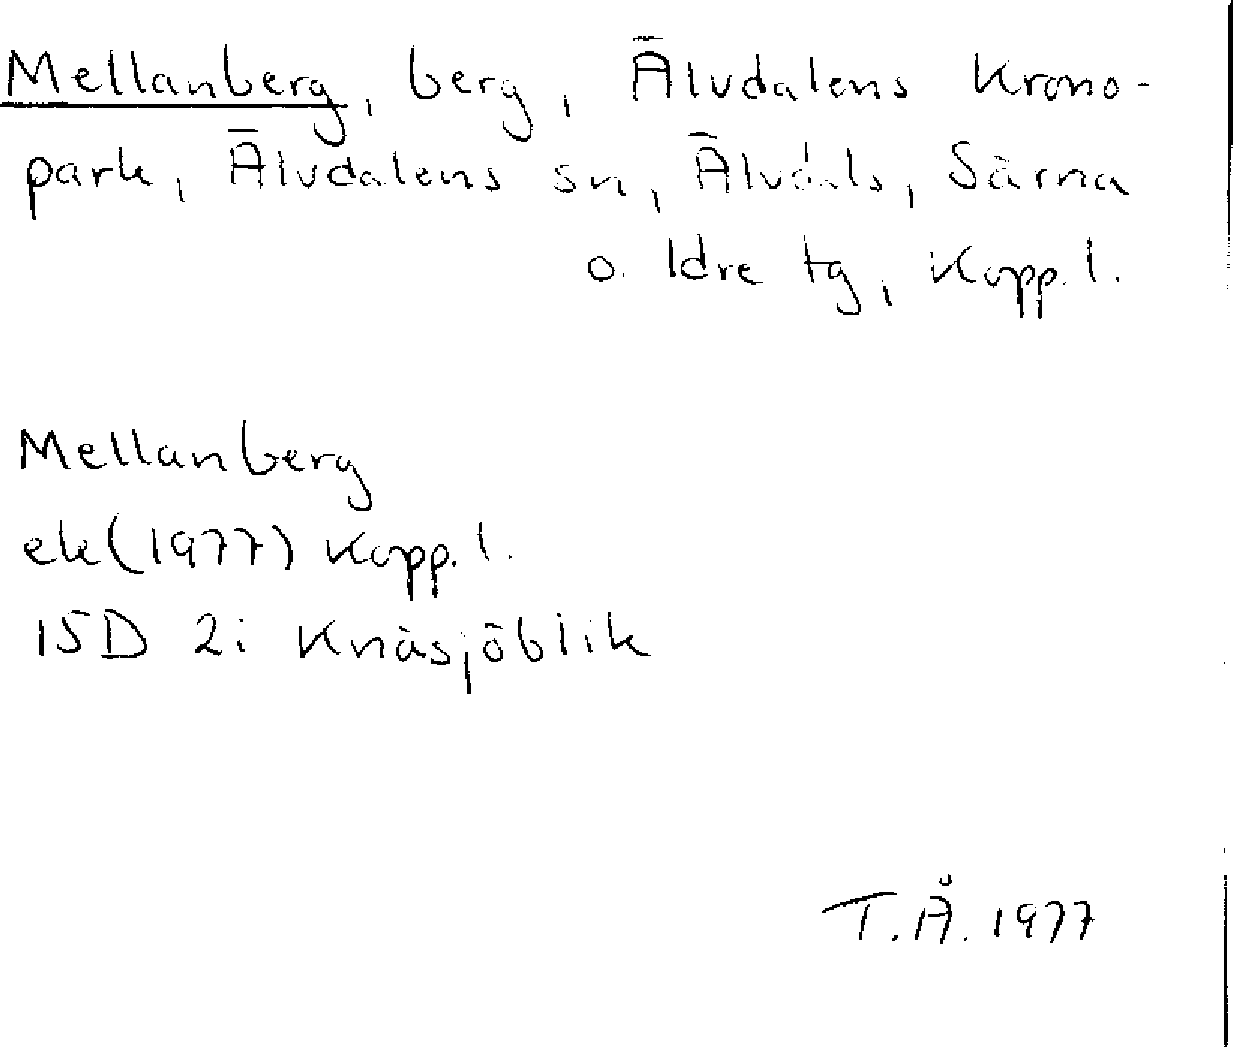 Mellanberg, berg, Älvdalens Krono-
park, Älvdalens sn, Älvdals, Särna
o. Idre tg, Kopp. l.
Mellanberg
ek(1977) Kopp. l.
15D 2i Knäsjöblik
T.Å. 1977